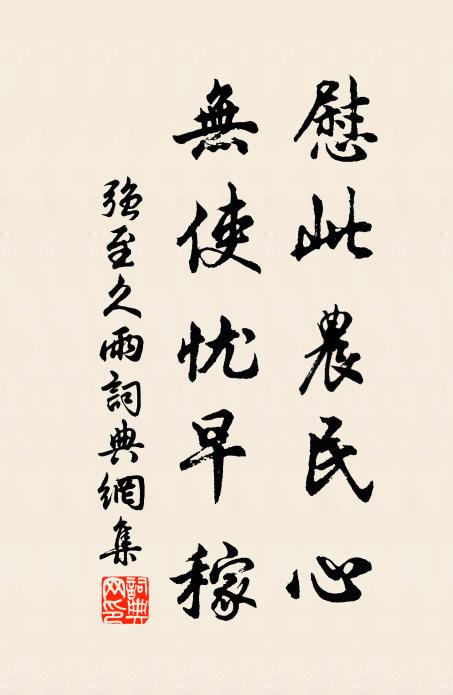 慰此農民心
無使忧早稼
強至久雨詞典網集
詞典网印